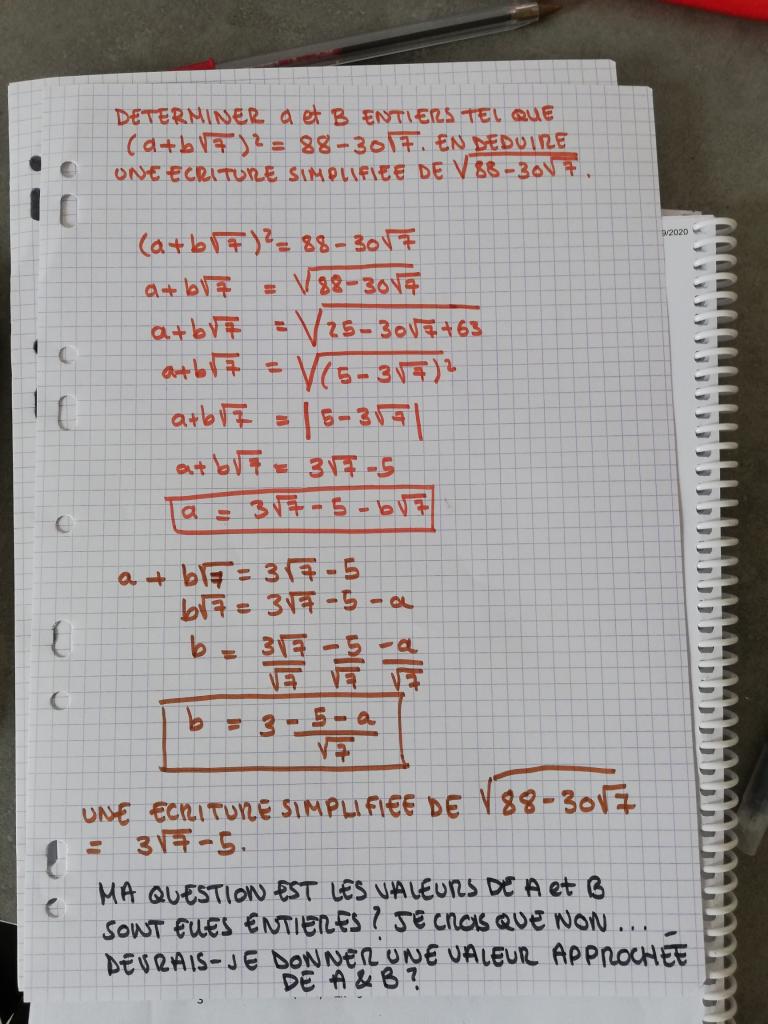 DETERMINER a et B ENTIERS TEL QUE
(a+b√7)² = 88-30√7. EN DEDUIRE
UNE ECRITURE SIMPLIFIEE DE √88-30√7.
9/2020
(a+b√7)² = 88-30√7
a+b√7 = √88-30√7
a+b√7 = √25-30√7+63
a+b√7 = √(5-3√7)²
a+b√7 = |5-3√7|
a+b√7 = 3√7-5
a = 3√7-5-b√7
a + b√7 = 3√7-5
b√7 = 3√7-5-a
b = 3√7/√7 -5/√7 -a/√7
b = 3 - 5-a/√7
UNE ECRITURE SIMPLIFIEE DE √88-30√7
= 3√7-5.
MA QUESTION EST LES VALEURS DE A et B
SONT ELLES ENTIERES ? JE CROIS QUE NON ...
DEVRAIS-JE DONNER UNE VALEUR APPROCHÉE
DE A & B ?